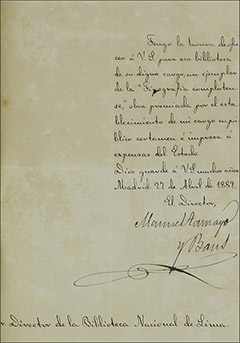 Tengo la honra de ofre-
cer á V. S. para esa biblioteca
de su digno cargo, un ejemplar
de la "Tipografía compluten-
se," obra premiada por el esta-
blecimiento de mi cargo en pú-
blico certamen é impresa á
expensas del Estado.
Dios guarde á V. S. muchos años
Madrid 27 de Abril de 1889.
El Director,
Manuel Tamayo
y Baus
r. Director de la Biblioteca Nacional de Lima.